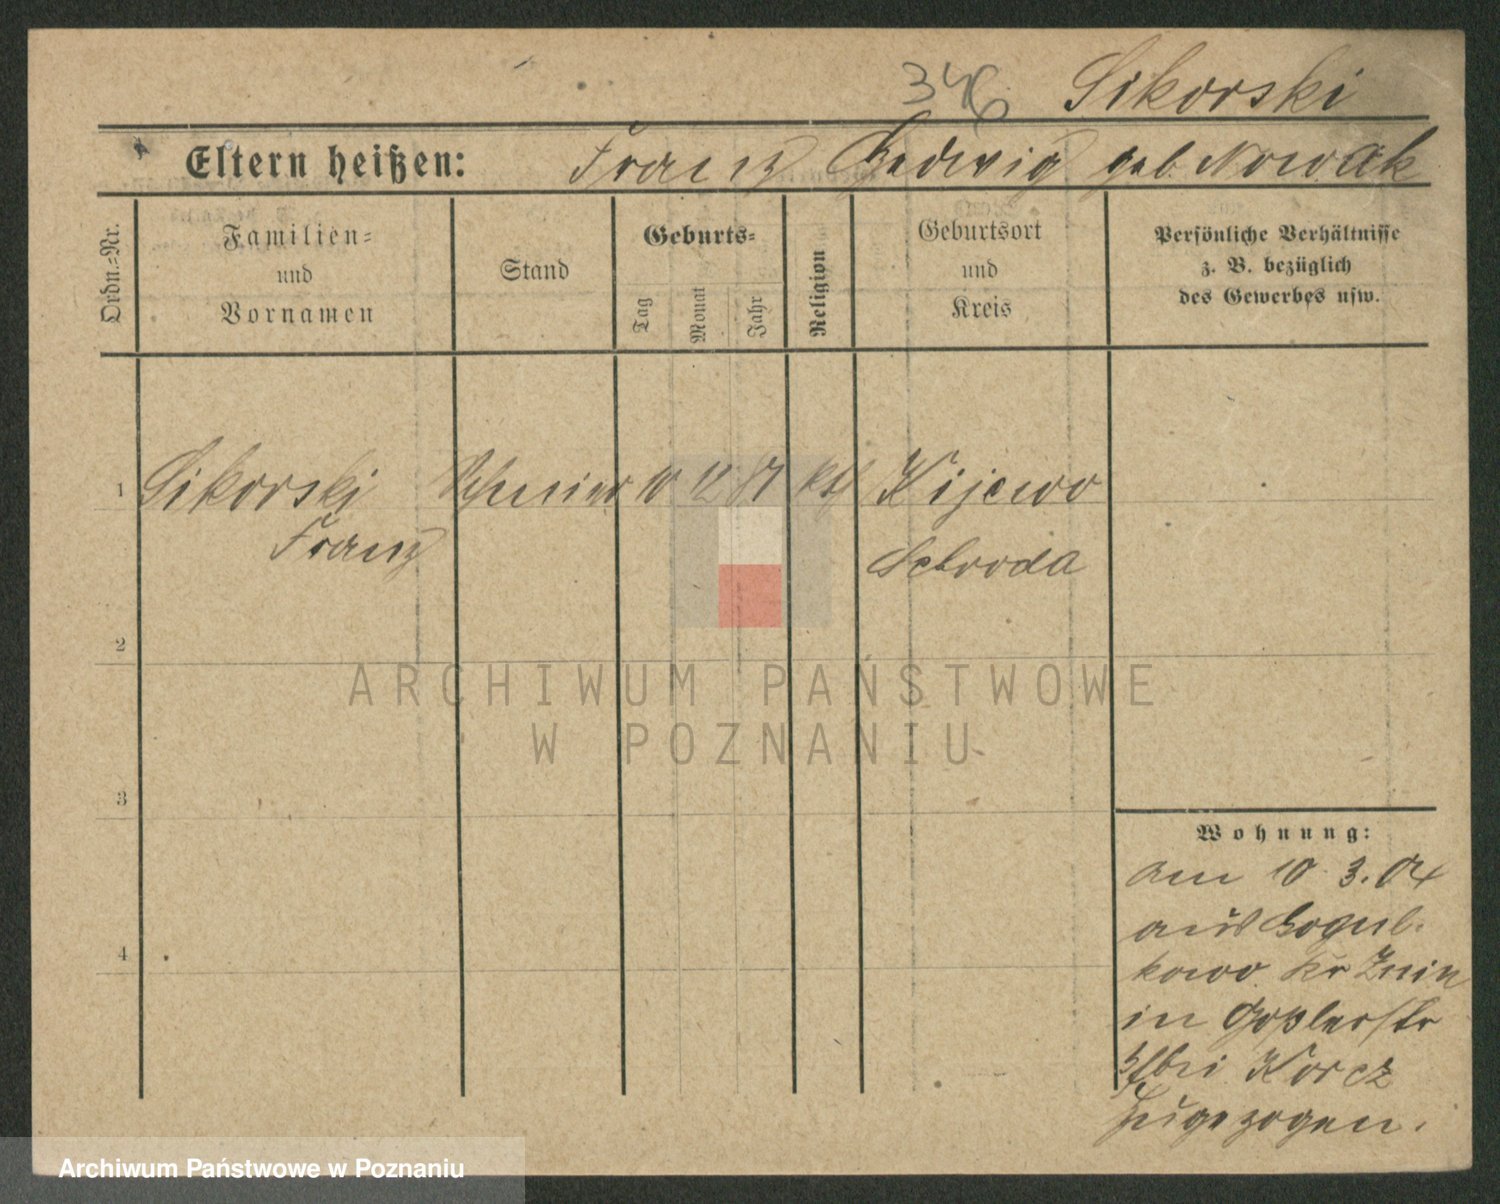 346 Sikorski
Eltern heißen: Franz Hedwig geb. Nowak
Ordn.-Nr.
Familien-
und
Vornamen
Stand
Geburts-
Tag
Monat
Jahr
Religion
Geburtsort
und
Kreis
Persönliche Verhältnisse
z. B. bezüglich
des Gewerbes usw.
1 Sikorski 10 12 87 kth Kijewo
Franz
Schroda
2
3
4
Wohnung:
am 10. 3. 04
aus Gogul-
kowo Kr Znin
in Goßlerstr
bei Korcz
zugezogen.
ARCHIWUM PAŃSTWOWE
W POZNANIU
Archiwum Państwowe w Poznaniu